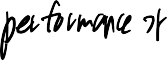 performance가